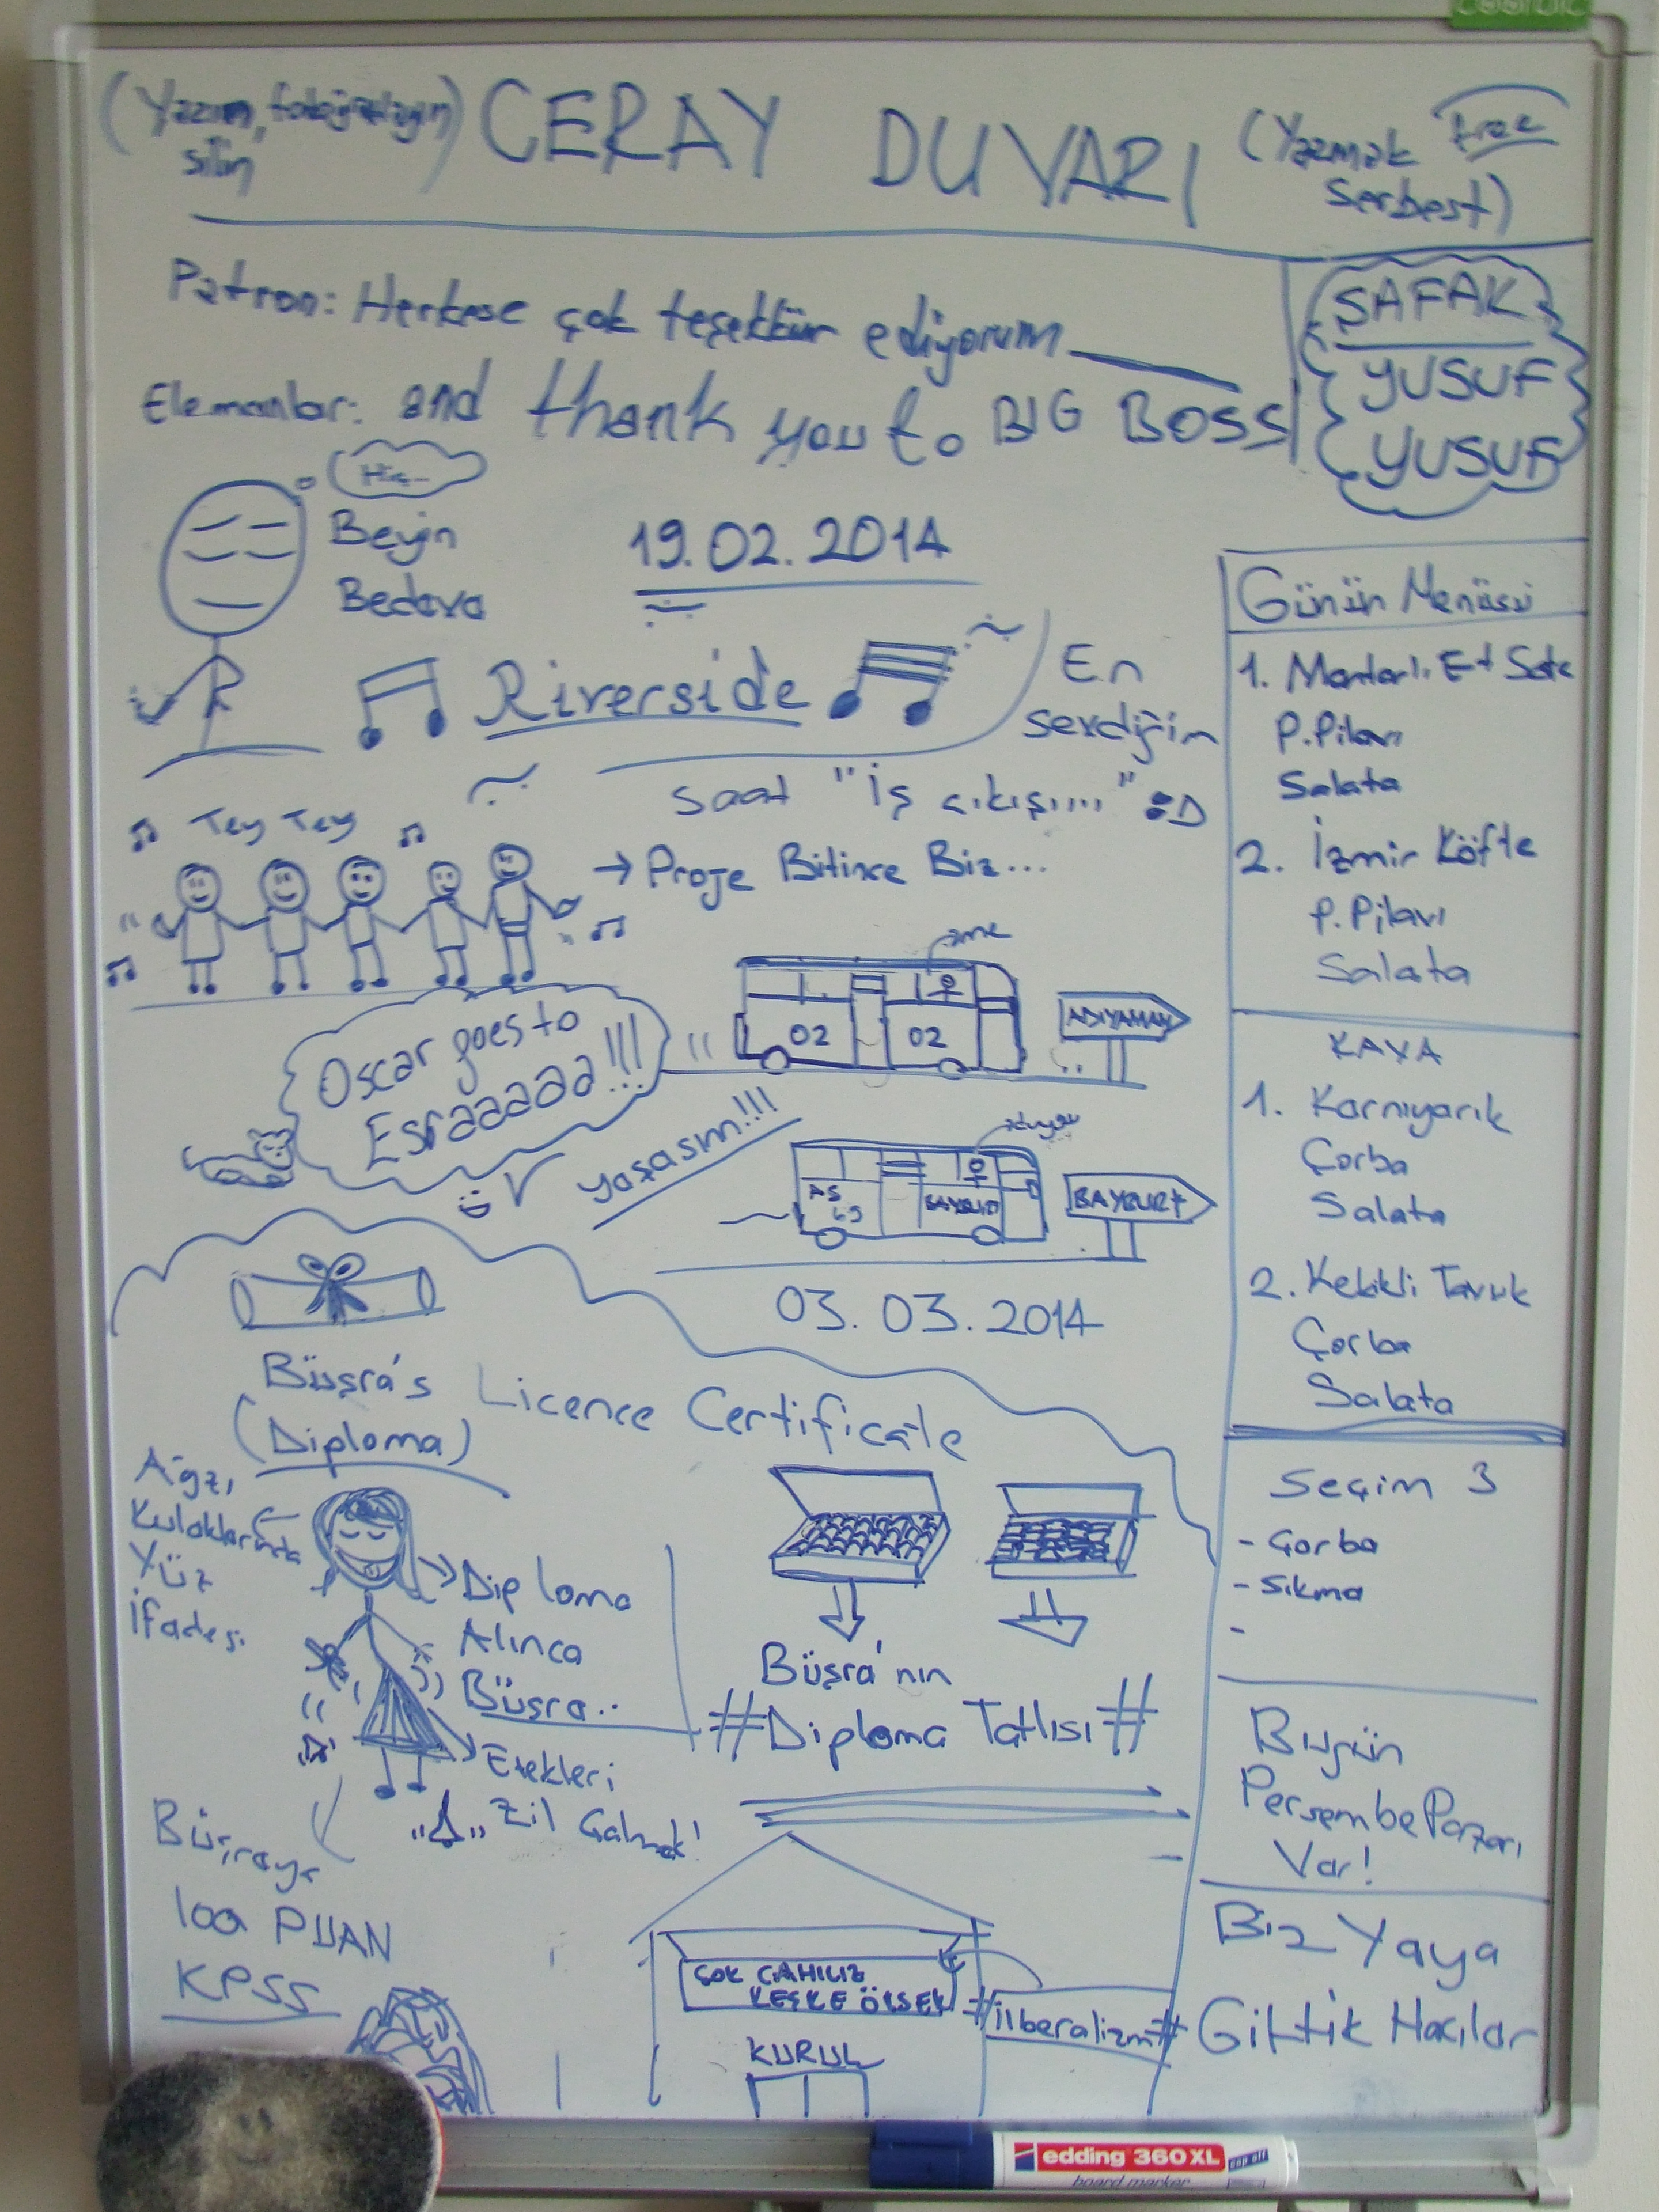 (Yazın, fotoğraflayın
silin)
CERAY DUVARI
(Yazmak free
Serbest)
Patron: Herkese çok teşekkür ediyorum
Elemanlar: and thank you to BIG BOSS
ŞAFAK
YUSUF
YUSUF
Hiç...
Beyin
Bedava
19.02.2014
Riverside
En
sevdiğim
saat "iş çıkışı...." :D
Tey Tey
→ Proje Bitince Biz...
Oscar goes to
Esraaaaaa!!!
02 02
ADIYAMAN
yaşasın!!!
BAYBURT
BAYBURT
03.03.2014
Büşra's Licence Certificate
(Diploma)
Ağzı
Kulaklarında
Yüz
İfadesi
Diploma
Alınca
Büşra..
Etekleri
Zil Çalmak!
Büşra'nın
#Diploma Tatlısı#
Büşraya
100 PUAN
KPSS
ÇOK CAHİLİZ
KEŞKE ÖLSEK
#liberalizm#
KURUL
Günün Menüsü
1. Mantarlı Et Sote
P.Pilavı
Salata
2. İzmir Köfte
P.Pilavı
Salata
KAYA
1. Karnıyarık
Çorba
Salata
2. Kekikli Tavuk
Çorba
Salata
Seçim 3
- Çorba
- Sıkma
-
Bugün
Perşembe Pazarı
Var!
Biz Yaya
Gittik Hacılar
edding 360 XL
board marker